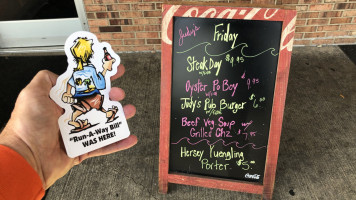 Coca-Cola
Judy's
Friday
Steak Day $9.95
w/FF
Oyster Po Boy
w/FF $9.95
Judy's Pub Burger
w/FF $6.
Beef Veg Soup w/
Grilled Chz $7.95
Hersey Yuengling
Porter $5.00
Coca-Cola
"RUN-A-WAY BILL"
WAS HERE!